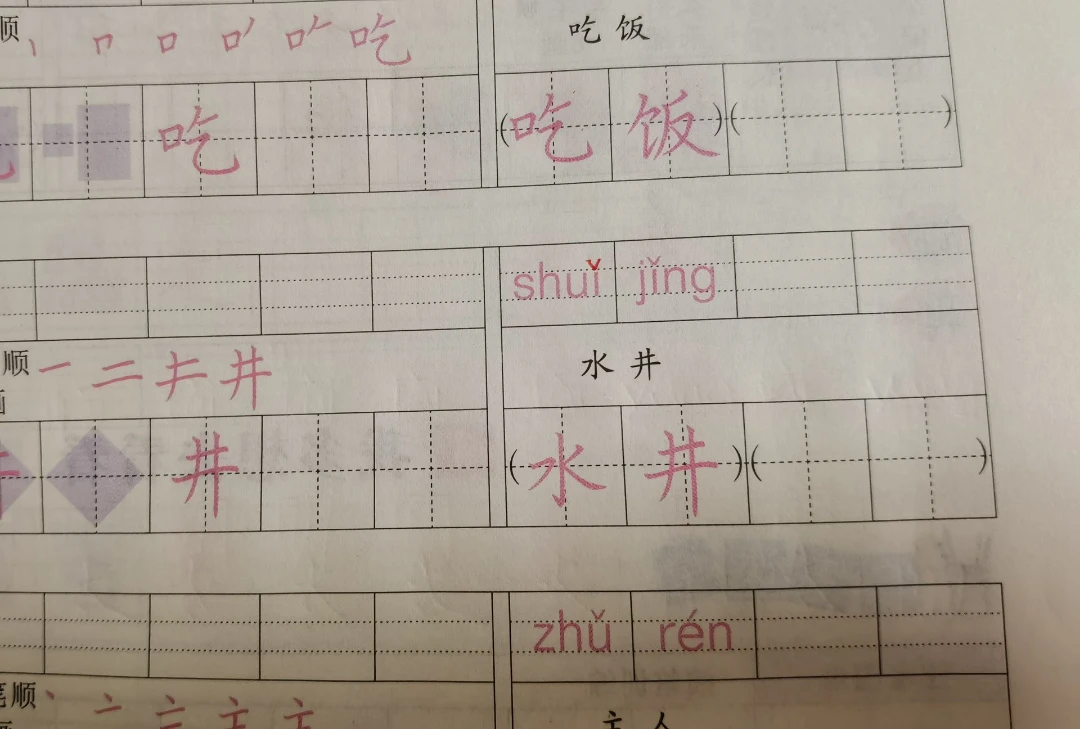 顺 丨 𠃍 口 吃
吃饭
吃 (吃饭)( )
shuǐ jǐng
顺 一 二 井
水井
井 (水井)( )
zhǔ rén
笔顺 丶 亠
主人